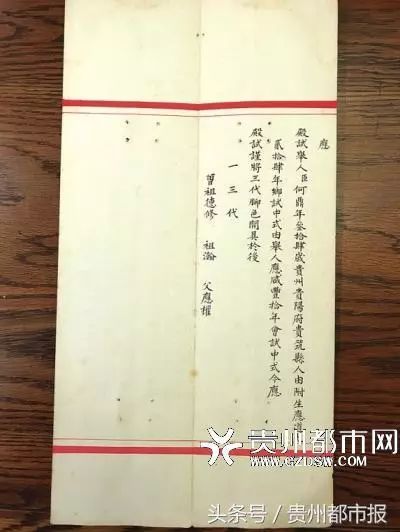 應
殿試舉人臣何鼎年叁拾肆歲貴州貴陽府貴筑縣人由附生應道
貳拾肆年鄉試中式由舉人應咸豐拾年會試中式今應
殿試謹將三代腳色開具於後
一三代
曾祖德修 祖瀚 父應權
贵州都市网
WWW.GZDSW.COM
头条号/贵州都市报